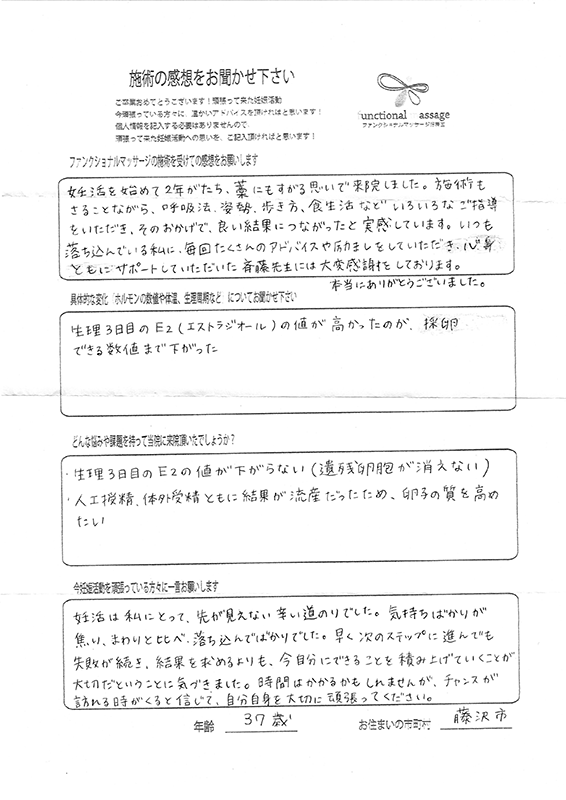 施術の感想をお聞かせ下さい
ご卒業おめでとうございます！頑張って来た妊娠活動
今頑張っている方々に、温かいアドバイスを頂ければと思います！
個人情報を記入する必要はありませんので、
頑張って来た妊娠活動への思いを、ご記入頂ければと思います！
functional massage
ファンクショナルマッサージ治療室
ファンクショナルマッサージの施術を受けての感想をお願いします
妊活を始めて2年がたち、藁にもすがる思いで来院しました。施術も
さることながら、呼吸法、姿勢、歩き方、食生活などいろいろなご指導
をいただき、そのおかげで、良い結果につながったと実感しています。いつも
落ち込んでいる私に、毎回たくさんのアドバイスや励ましをしていただき、心身
ともにサポートしていただいた斉藤先生には大変感謝をしております。
本当にありがとうございました。
具体的な変化「ホルモンの数値や体温、生理周期など」についてお聞かせ下さい
生理3日目のE2(エストラジオール)の値が高かったのが、採卵
できる数値まで下がった
どんな悩みや課題を持って当院に来院頂いたでしょうか？
・生理3日目のE2の値が下がらない(遺残卵胞が消えない)
・人工授精、体外受精ともに結果が流産だったため、卵子の質を高め
たい
今妊娠活動を頑張っている方々に一言お願いします
妊活は私にとって、先が見えない辛い道のりでした。気持ちばかりが
焦り、まわりと比べ、落ち込んでばかりでした。早く次のステップに進んでも
失敗が続き、結果を求めるよりも、今自分にできることを積み上げていくことが
大切だということに気づきました。時間はかかるかもしれませんが、チャンスが
訪れる時がくると信じて、自分自身を大切に頑張ってください。
年齢 37歳 お住まいの市町村 藤沢市